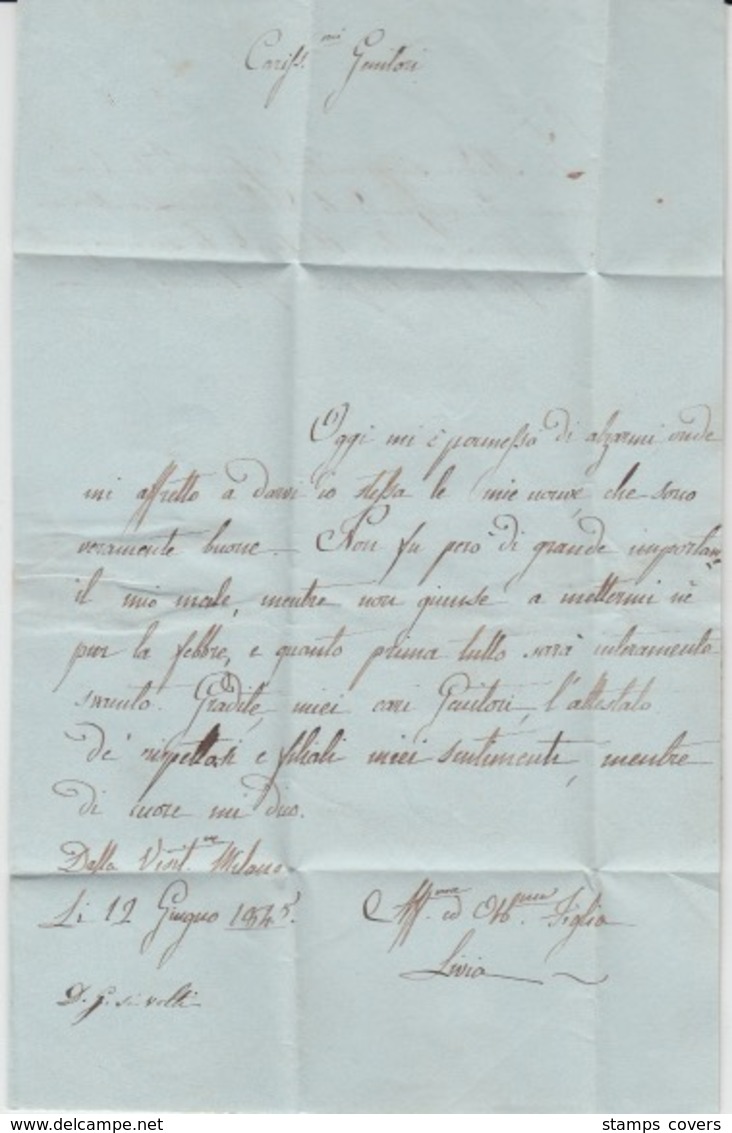 Cariss.mi Genitori
Oggi mi è permesso di alzarmi onde
mi affretto a darvi io stessa le mie nuove, che sono
veramente buone. Non fu però di grande importan
il mio male, mentre non giunse a mettermi nè
pur la febbre, e quanto prima tutto sarà interamente
svanito. Gradite, miei cari Genitori, l'attestato
de' rispettosi e filiali miei sentimenti, mentre
di cuore mi dico.
Dalla Visit.ne Milano
Li 12 Giugno 1845.
Aff.ma ed Obb.ma Figlia
Livia
D. G. si volti
www.delcampe.net
stamps covers